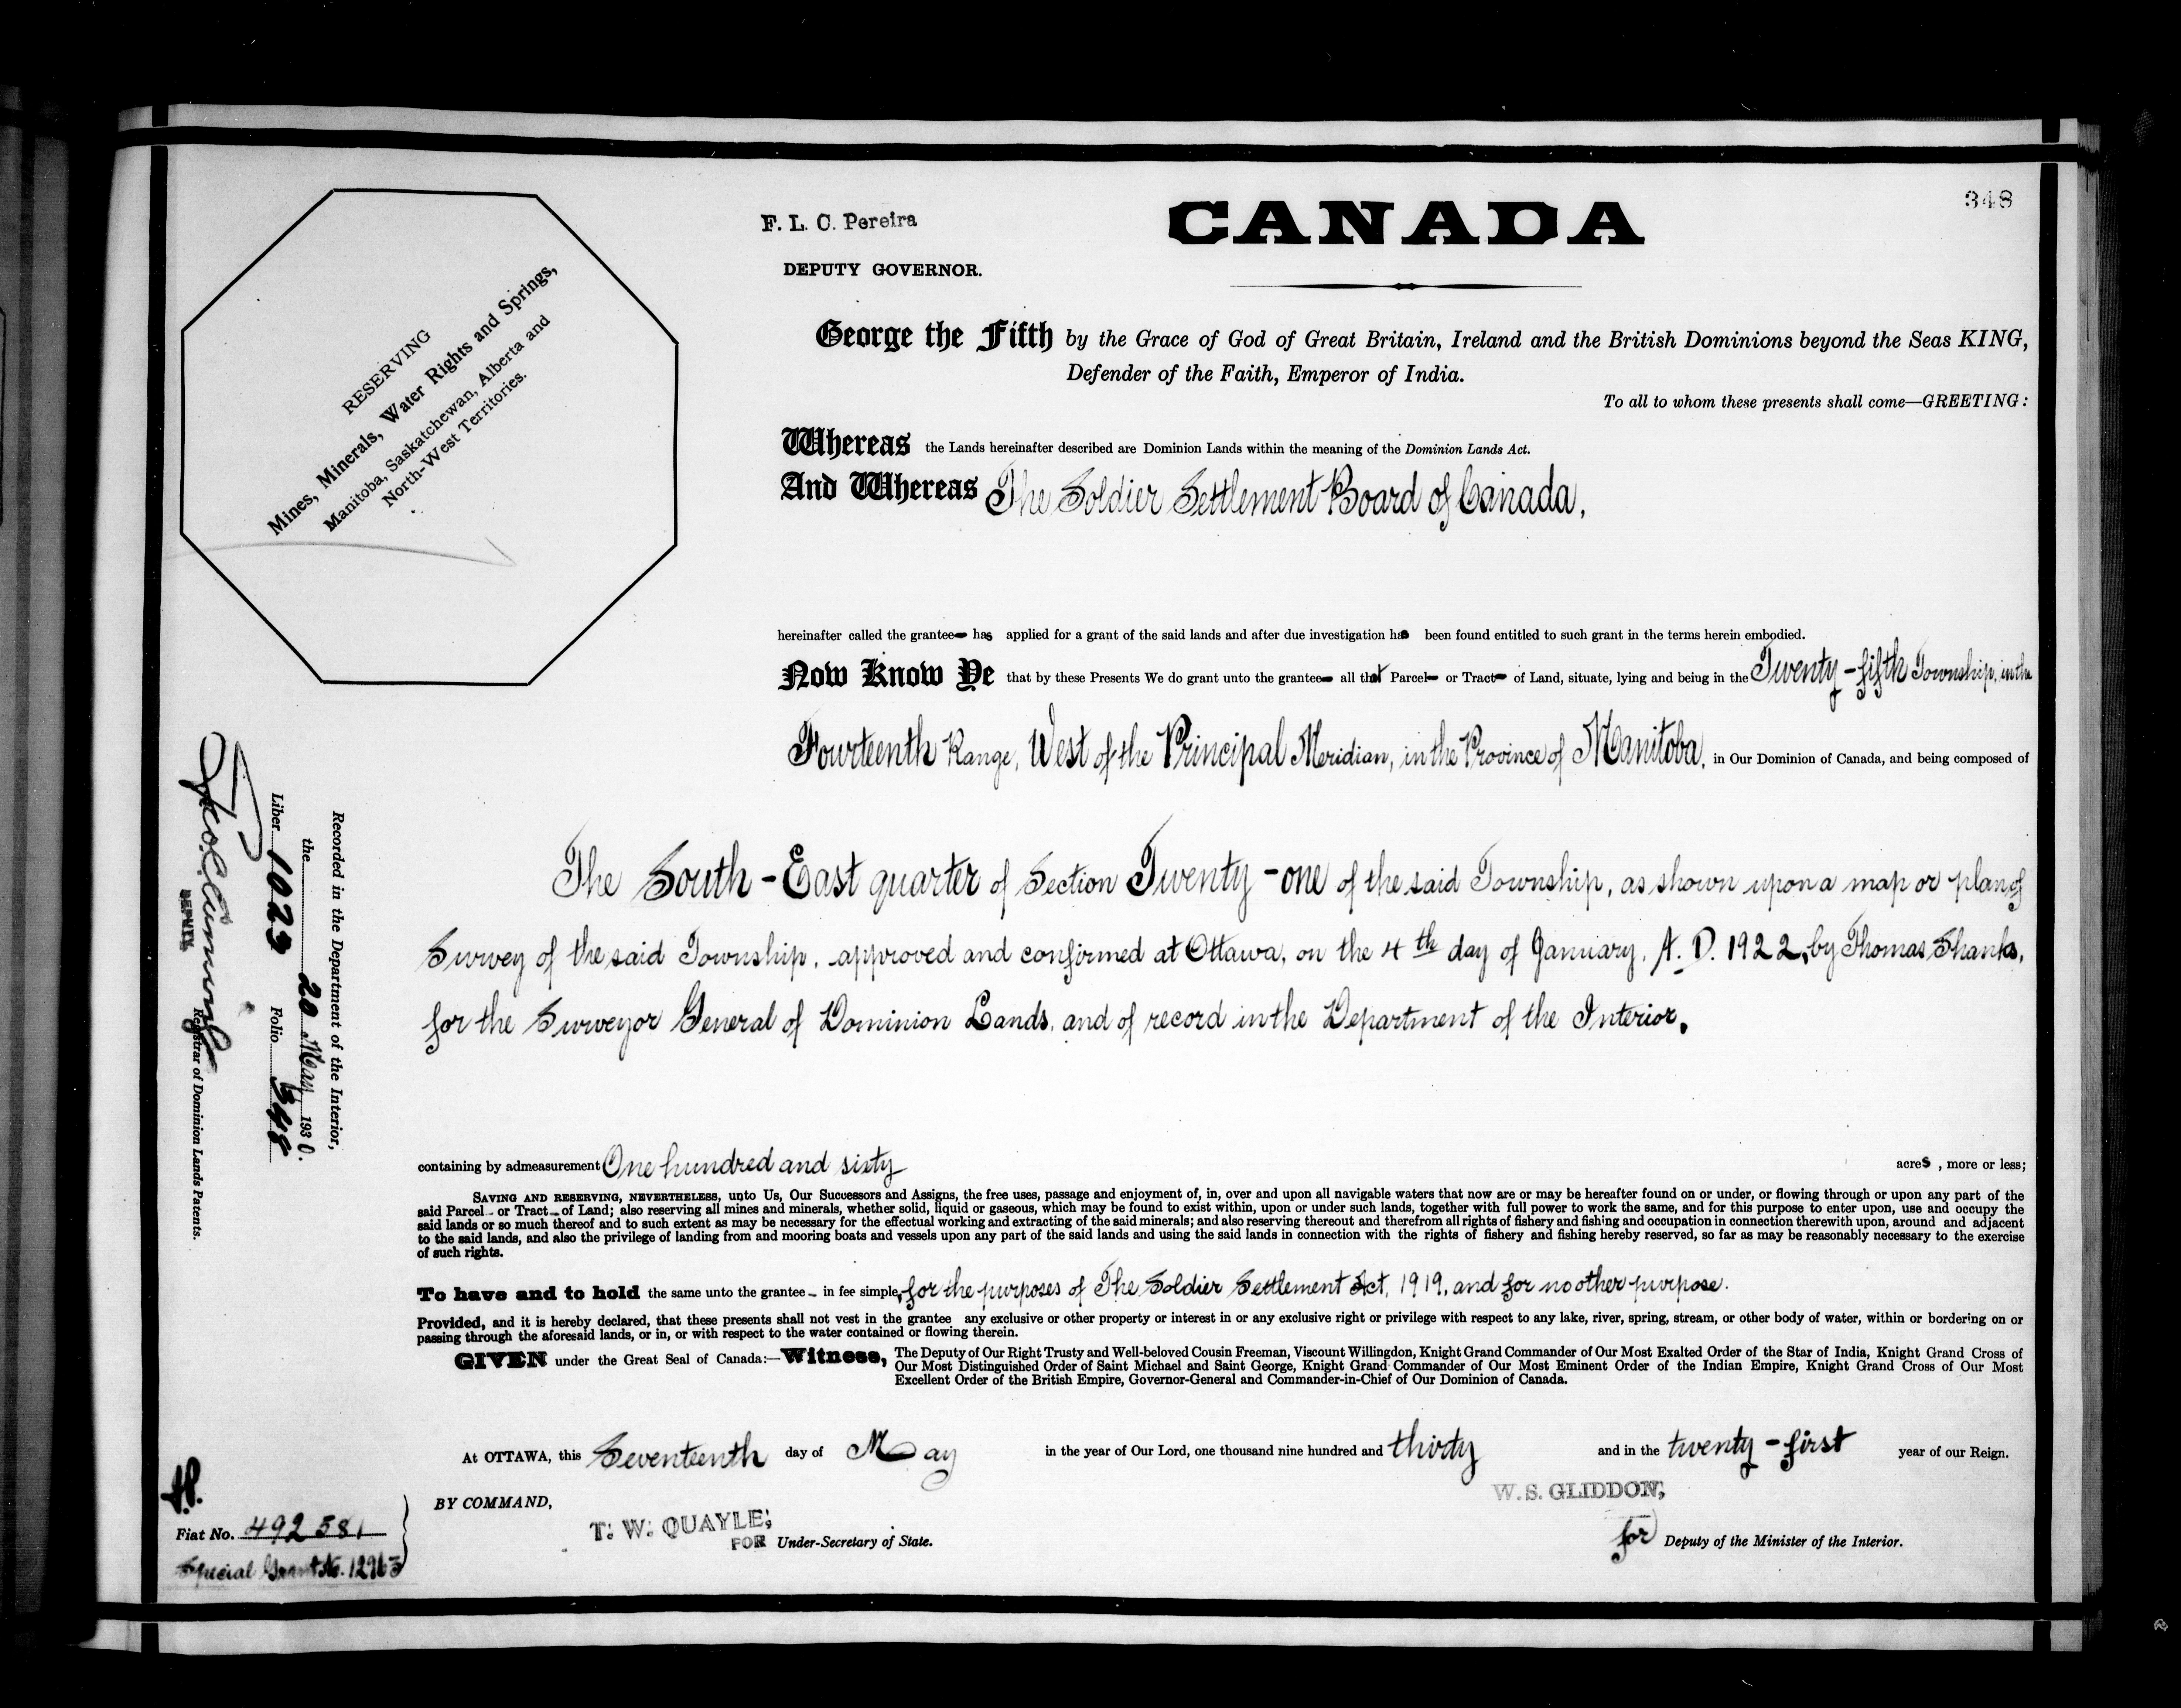 348
F. L. C. Pereira
DEPUTY GOVERNOR.
CANADA
RESERVING
Mines, Minerals, Water Rights and Springs,
Manitoba, Saskatchewan, Alberta and
North-West Territories.
George the Fifth by the Grace of God of Great Britain, Ireland and the British Dominions beyond the Seas KING,
Defender of the Faith, Emperor of India.
To all to whom these presents shall come—GREETING:
Whereas the Lands hereinafter described are Dominion Lands within the meaning of the Dominion Lands Act.
And Whereas The Soldier Settlement Board of Canada,
hereinafter called the grantee has applied for a grant of the said lands and after due investigation has been found entitled to such grant in the terms herein embodied.
Now Know Ye that by these Presents We do grant unto the grantee all that Parcel or Tract of Land, situate, lying and being in the Twenty-fifth Township, in the
Fourteenth Range, West of the Principal Meridian, in the Province of Manitoba, in Our Dominion of Canada, and being composed of
The South-East quarter of Section Twenty-one of the said Township, as shown upon a map or plan of
Survey of the said Township, approved and confirmed at Ottawa, on the 4th day of January, A. D. 1922, by Thomas Shanks,
for the Surveyor General of Dominion Lands, and of record in the Department of the Interior.
containing by admeasurement One hundred and sixty acres, more or less;
SAVING AND RESERVING, NEVERTHELESS, unto Us, Our Successors and Assigns, the free uses, passage and enjoyment of, in, over and upon all navigable waters that now are or may be hereafter found on or under, or flowing through or upon any part of the
said Parcel or Tract of Land; also reserving all mines and minerals, whether solid, liquid or gaseous, which may be found to exist within, upon or under such lands, together with full power to work the same, and for this purpose to enter upon, use and occupy the
said lands or so much thereof and to such extent as may be necessary for the effectual working and extracting of the said minerals; and also reserving thereout and therefrom all rights of fishery and fishing and occupation in connection therewith upon, around and adjacent
to the said lands, and also the privilege of landing from and mooring boats and vessels upon any part of the said lands and using the said lands in connection with the rights of fishery and fishing hereby reserved, so far as may be reasonably necessary to the exercise
of such rights.
To have and to hold the same unto the grantee in fee simple, for the purposes of The Soldier Settlement Act, 1919, and for no other purpose.
Provided, and it is hereby declared, that these presents shall not vest in the grantee any exclusive or other property or interest in or any exclusive right or privilege with respect to any lake, river, spring, stream, or other body of water, within or bordering on or
passing through the aforesaid lands, or in, or with respect to the water contained or flowing therein.
GIVEN under the Great Seal of Canada:—Witness, The Deputy of Our Right Trusty and Well-beloved Cousin Freeman, Viscount Willingdon, Knight Grand Commander of Our Most Exalted Order of the Star of India, Knight Grand Cross of
Our Most Distinguished Order of Saint Michael and Saint George, Knight Grand Commander of Our Most Eminent Order of the Indian Empire, Knight Grand Cross of Our Most
Excellent Order of the British Empire, Governor-General and Commander-in-Chief of Our Dominion of Canada.
At OTTAWA, this Seventeenth day of May in the year of Our Lord, one thousand nine hundred and thirty and in the twenty-first year of our Reign.
BY COMMAND,
T. W. QUAYLE,
FOR Under-Secretary of State.
W. S. GLIDDON,
for Deputy of the Minister of the Interior.
Recorded in the Department of the Interior,
the 20 May 1930.
Liber 1023 Folio 348
DEPUTY
Registrar of Dominion Lands Patents.
Fiat No. 492581
Special Grant No. 12963